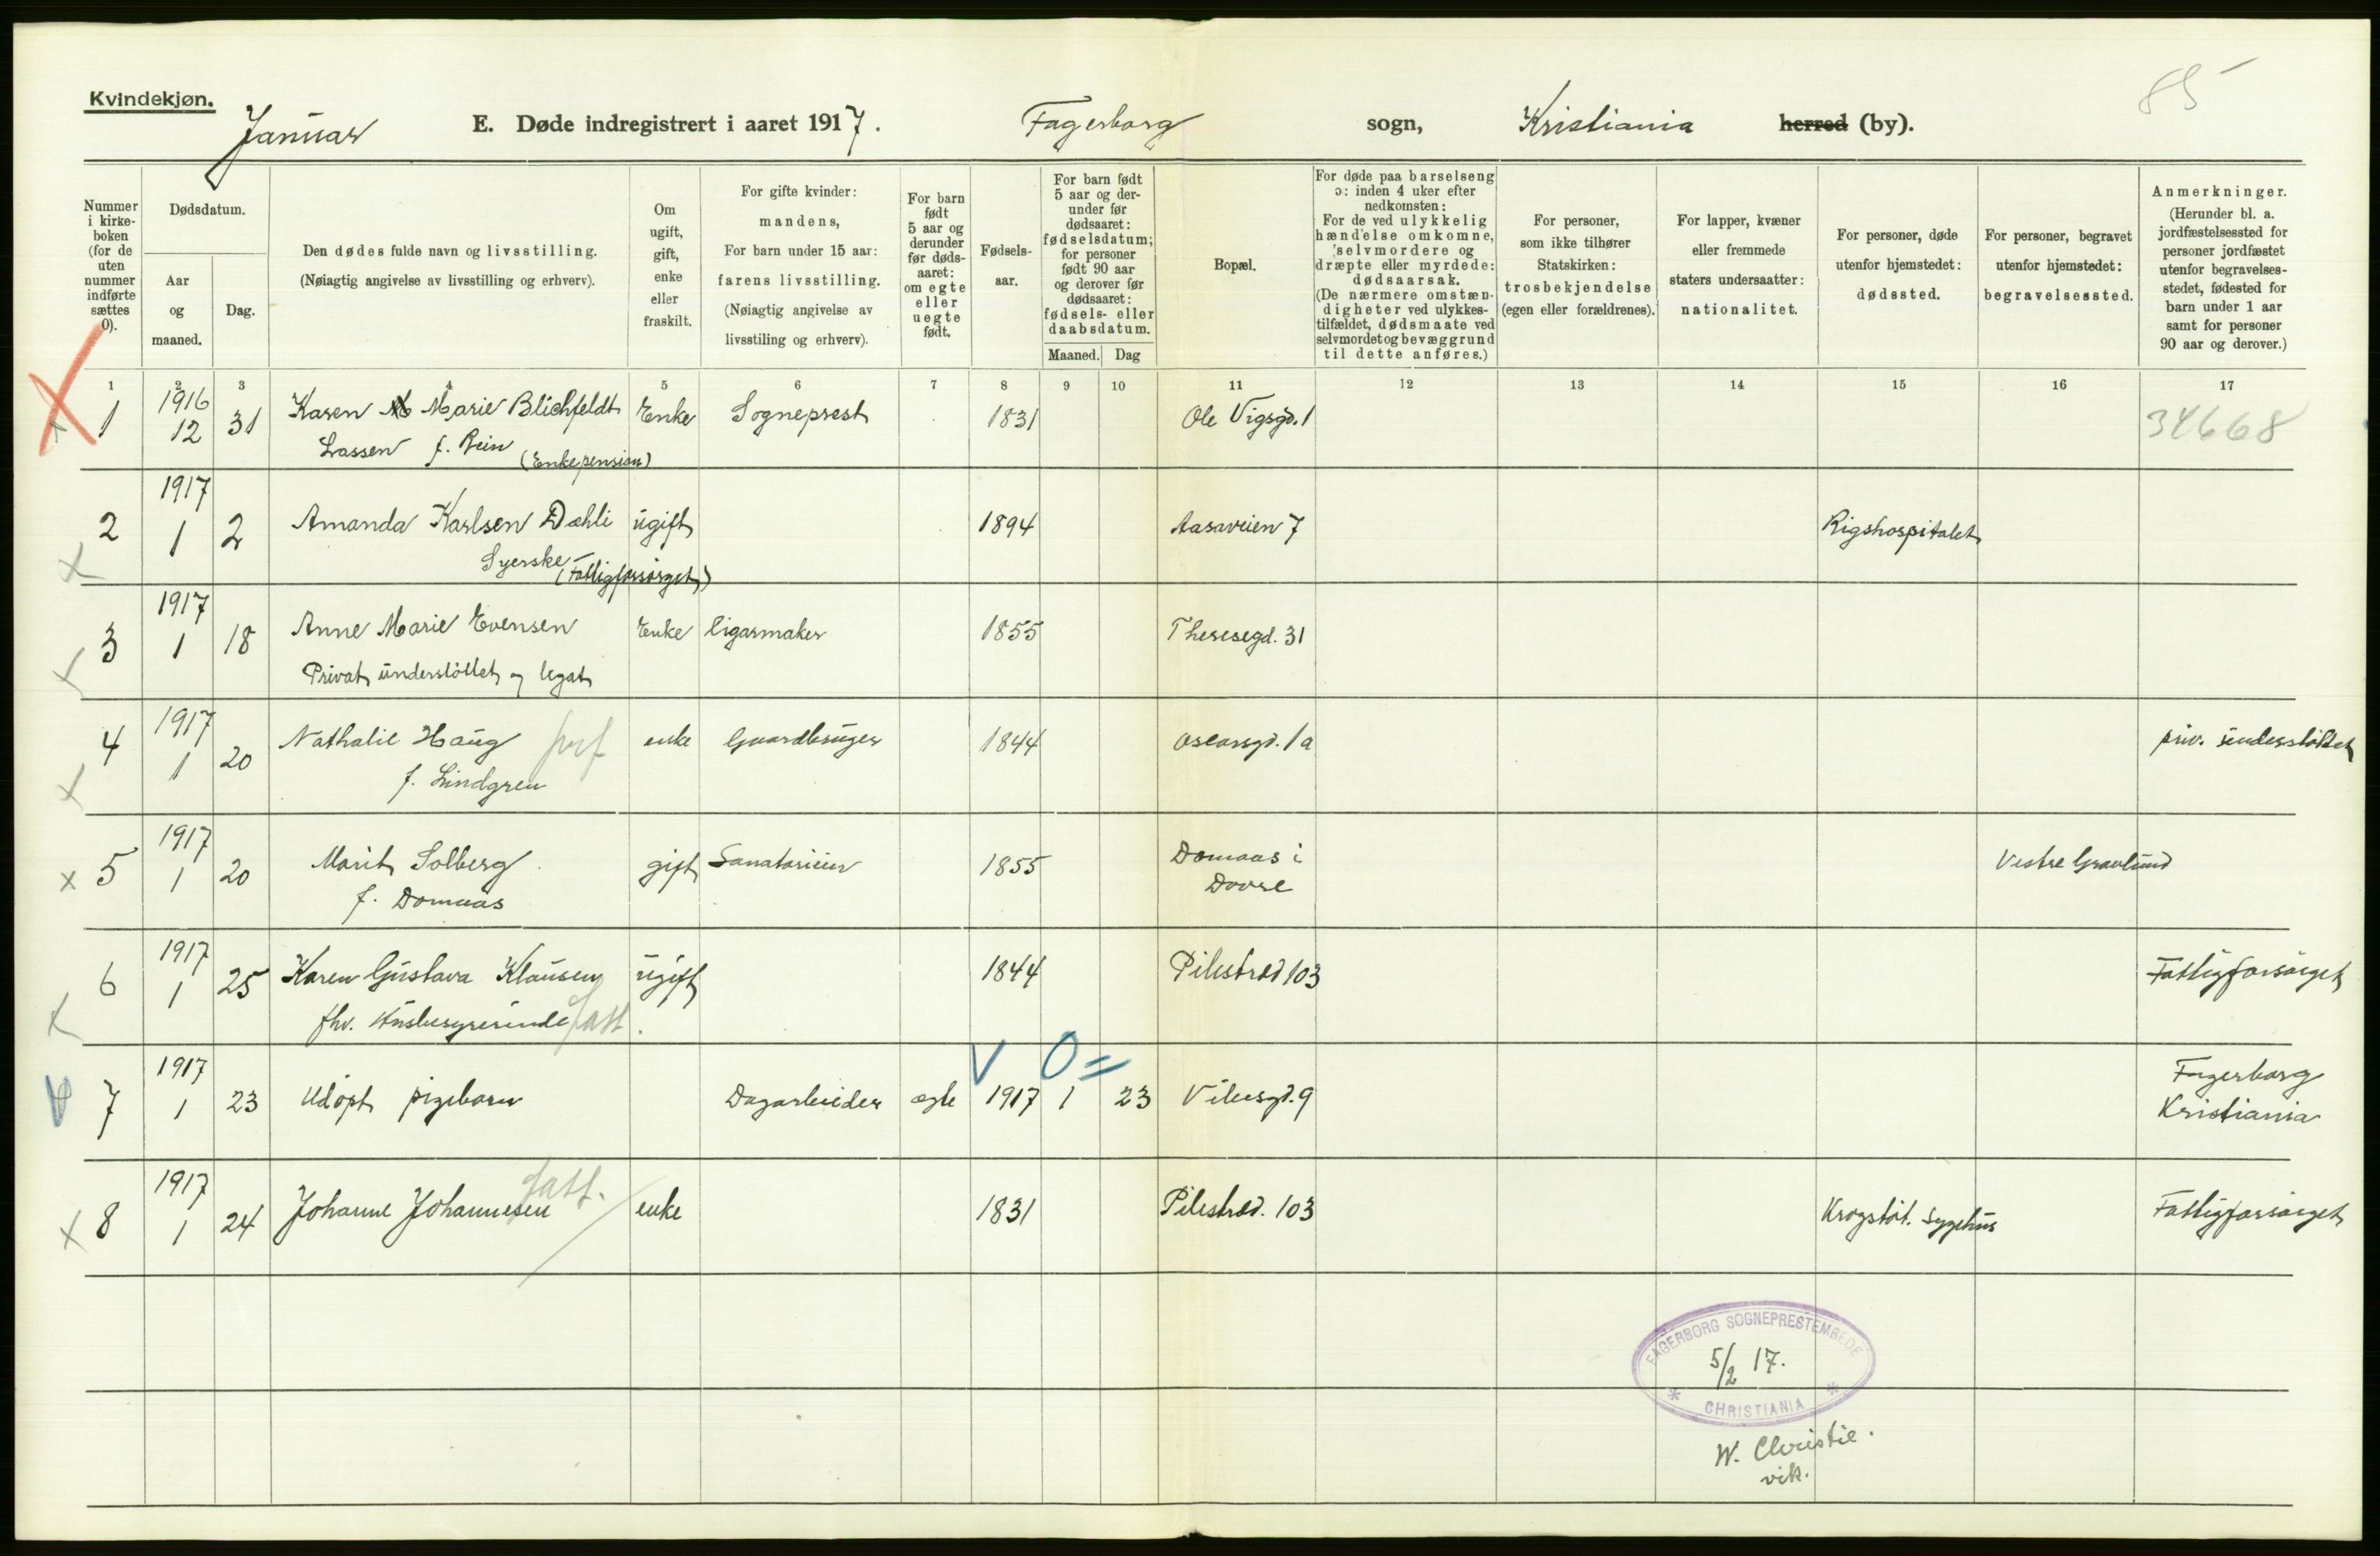 85
Kvindekjøn.
Januar E. Døde indregistrert i aaret 1917. Fagerborg sogn, Kristiania herred (by).
Nummer i kirke-boken (for de uten nummer indførte sættes 0).
Dødsdatum.
Aar og maaned.
Dag.
Den dødes fulde navn og livsstilling.
(Nøiagtig angivelse av livsstilling og erhverv).
Om ugift, gift, enke eller fraskilt.
For gifte kvinder: mandens,
For barn under 15 aar: farens livsstilling.
(Nøiagtig angivelse av livsstiling og erhverv).
For barn født 5 aar og derunder før døds-aaret: om egte eller uegte født.
Fødsels-aar.
For barn født 5 aar og der-under før dødsaaret: fødselsdatum; for personer født 90 aar og derover før dødsaaret: fødsels- eller daabsdatum.
Maaned. Dag
Bopæl.
For døde paa barselseng ɔ: inden 4 uker efter nedkomsten:
For de ved ulykkelig hændelse omkomne, selvmordere og dræpte eller myrdede: dødsaarsak.
(De nærmere omstæn-digheter ved ulykkes-tilfældet, dødsmaate ved selvmordet og bevæggrund til dette anføres.)
For personer, som ikke tilhører Statskirken: trosbekjendelse (egen eller forældrenes).
For lapper, kvæner eller fremmede staters undersaatter: nationalitet.
For personer, døde utenfor hjemstedet: dødssted.
For personer, begravet utenfor hjemstedet: begravelsessted.
Anmerkninger.
(Herunder bl. a. jordfæstelsessted for personer jordfæstet utenfor begravelses-stedet, fødested for barn under 1 aar samt for personer 90 aar og derover.)
1 2 3 4 5 6 7 8 9 10 11 12 13 14 15 16 17
1 1916 12 31 Karen Marie Blichfeldt Enke Sogneprest 1831 Ole Vigsgd. 1 34668
Lassen f. Rein (Enkepension)
2 1917 1 2 Amanda Karlsen Dæhli ugift 1894 Aasaveien 7 Rigshospitalet
Syerske (Fattigforsørget)
3 1917 1 18 Anne Marie Evensen Enke Cigarmaker 1855 Theresegd. 31
Privat understøttet og legat
4 1917 1 20 Nathalie Haug enke Gaardbruger 1844 Oscarsgd. 1a priv. understøttet
f. Lindgren
5 1917 1 20 Marit Solberg gift 1855 Domaas i Dovre Vestre Gravlund
f. Domaas
6 1917 1 25 Karen Gustava Klausen ugift 1844 Pilestræd 103 Fattigforsørget
fhv. Husbestyrerinde fatt.
7 1917 1 23 Udøpt pigebarn Dagarbeider egte 1917 1 23 Vibesgd. 9 Fagerborg Kristiania
V 0 =
8 1917 1 24 Johanne Johannesen fatt. enke 1831 Pilestræd. 103 Krogstøt. Sygehus Fattigforsørget
FAGERBORG SOGNEPRESTEMBEDE
5/2 17.
* CHRISTIANIA *
W. Christie.
vik.